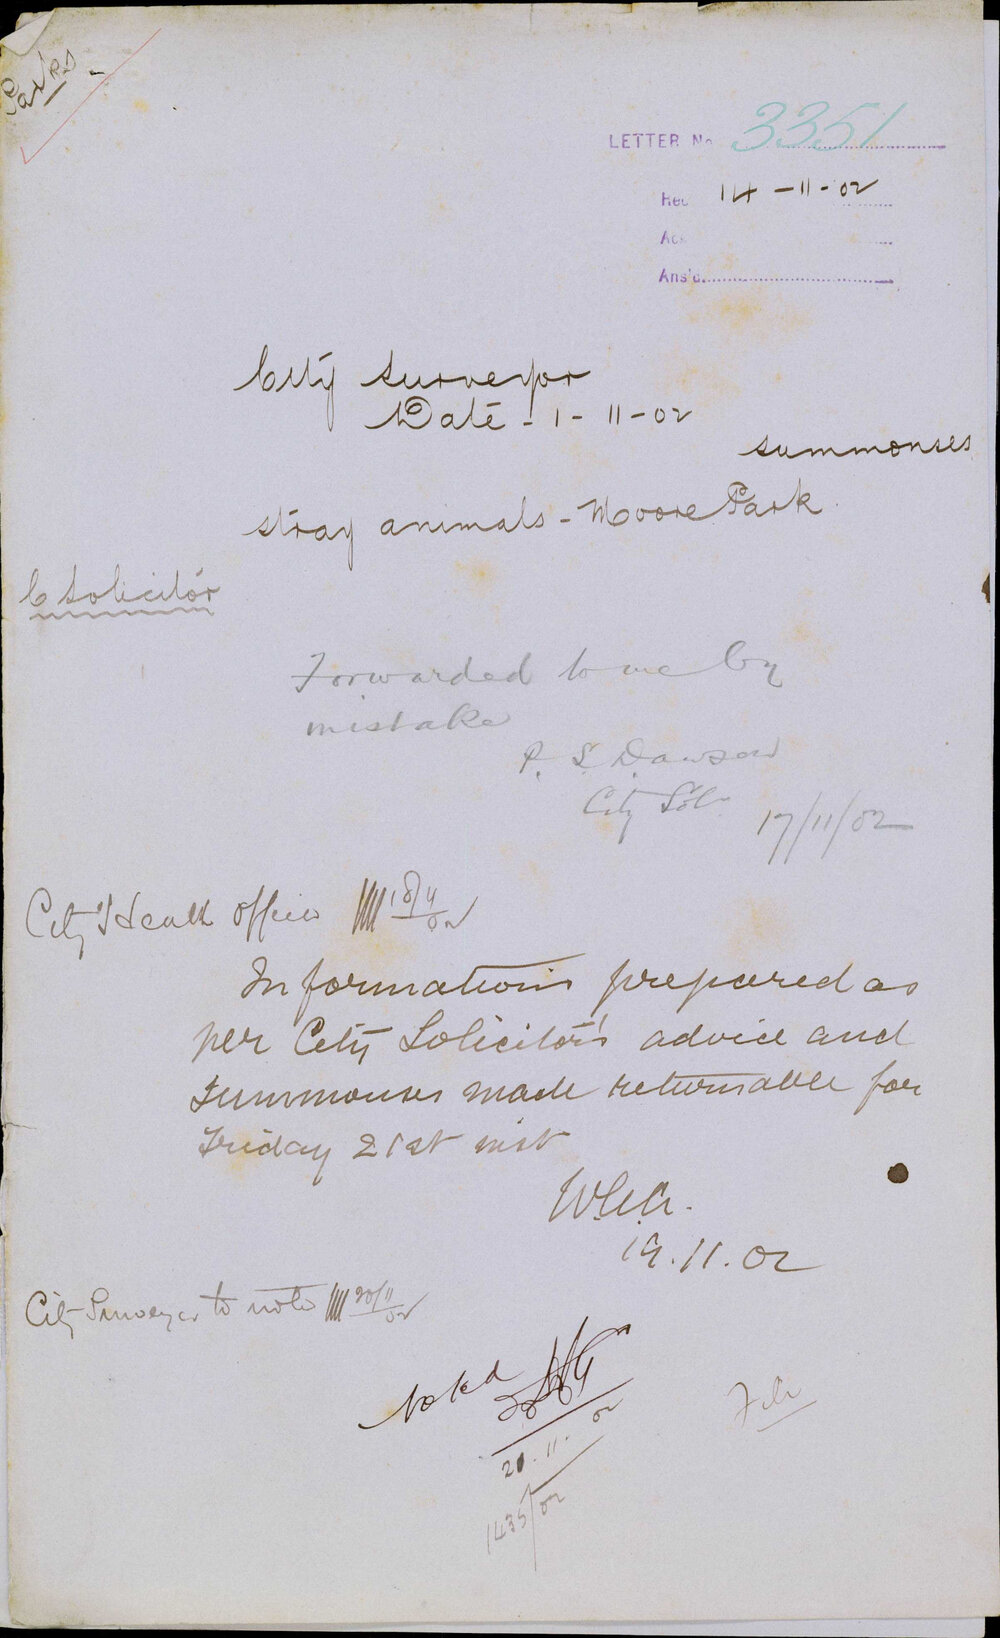 Parks
LETTER No 3351
Rec 14-11-02
Ack
Ans'd.
City Surveyor
Date - 1-11-02
summonses
stray animals - Moore Park
C Solicitor
Forwarded to me by
mistake
P. S. Dawson
City Sol
17/11/02
City Health Officer 18/11/02
Informations prepared as
per City Solicitor's advice and
Summonses made returnable for
Friday 21st inst
19.11.02
City Surveyor to note 20/11/02
Noted
20.11.02
1435/02
File